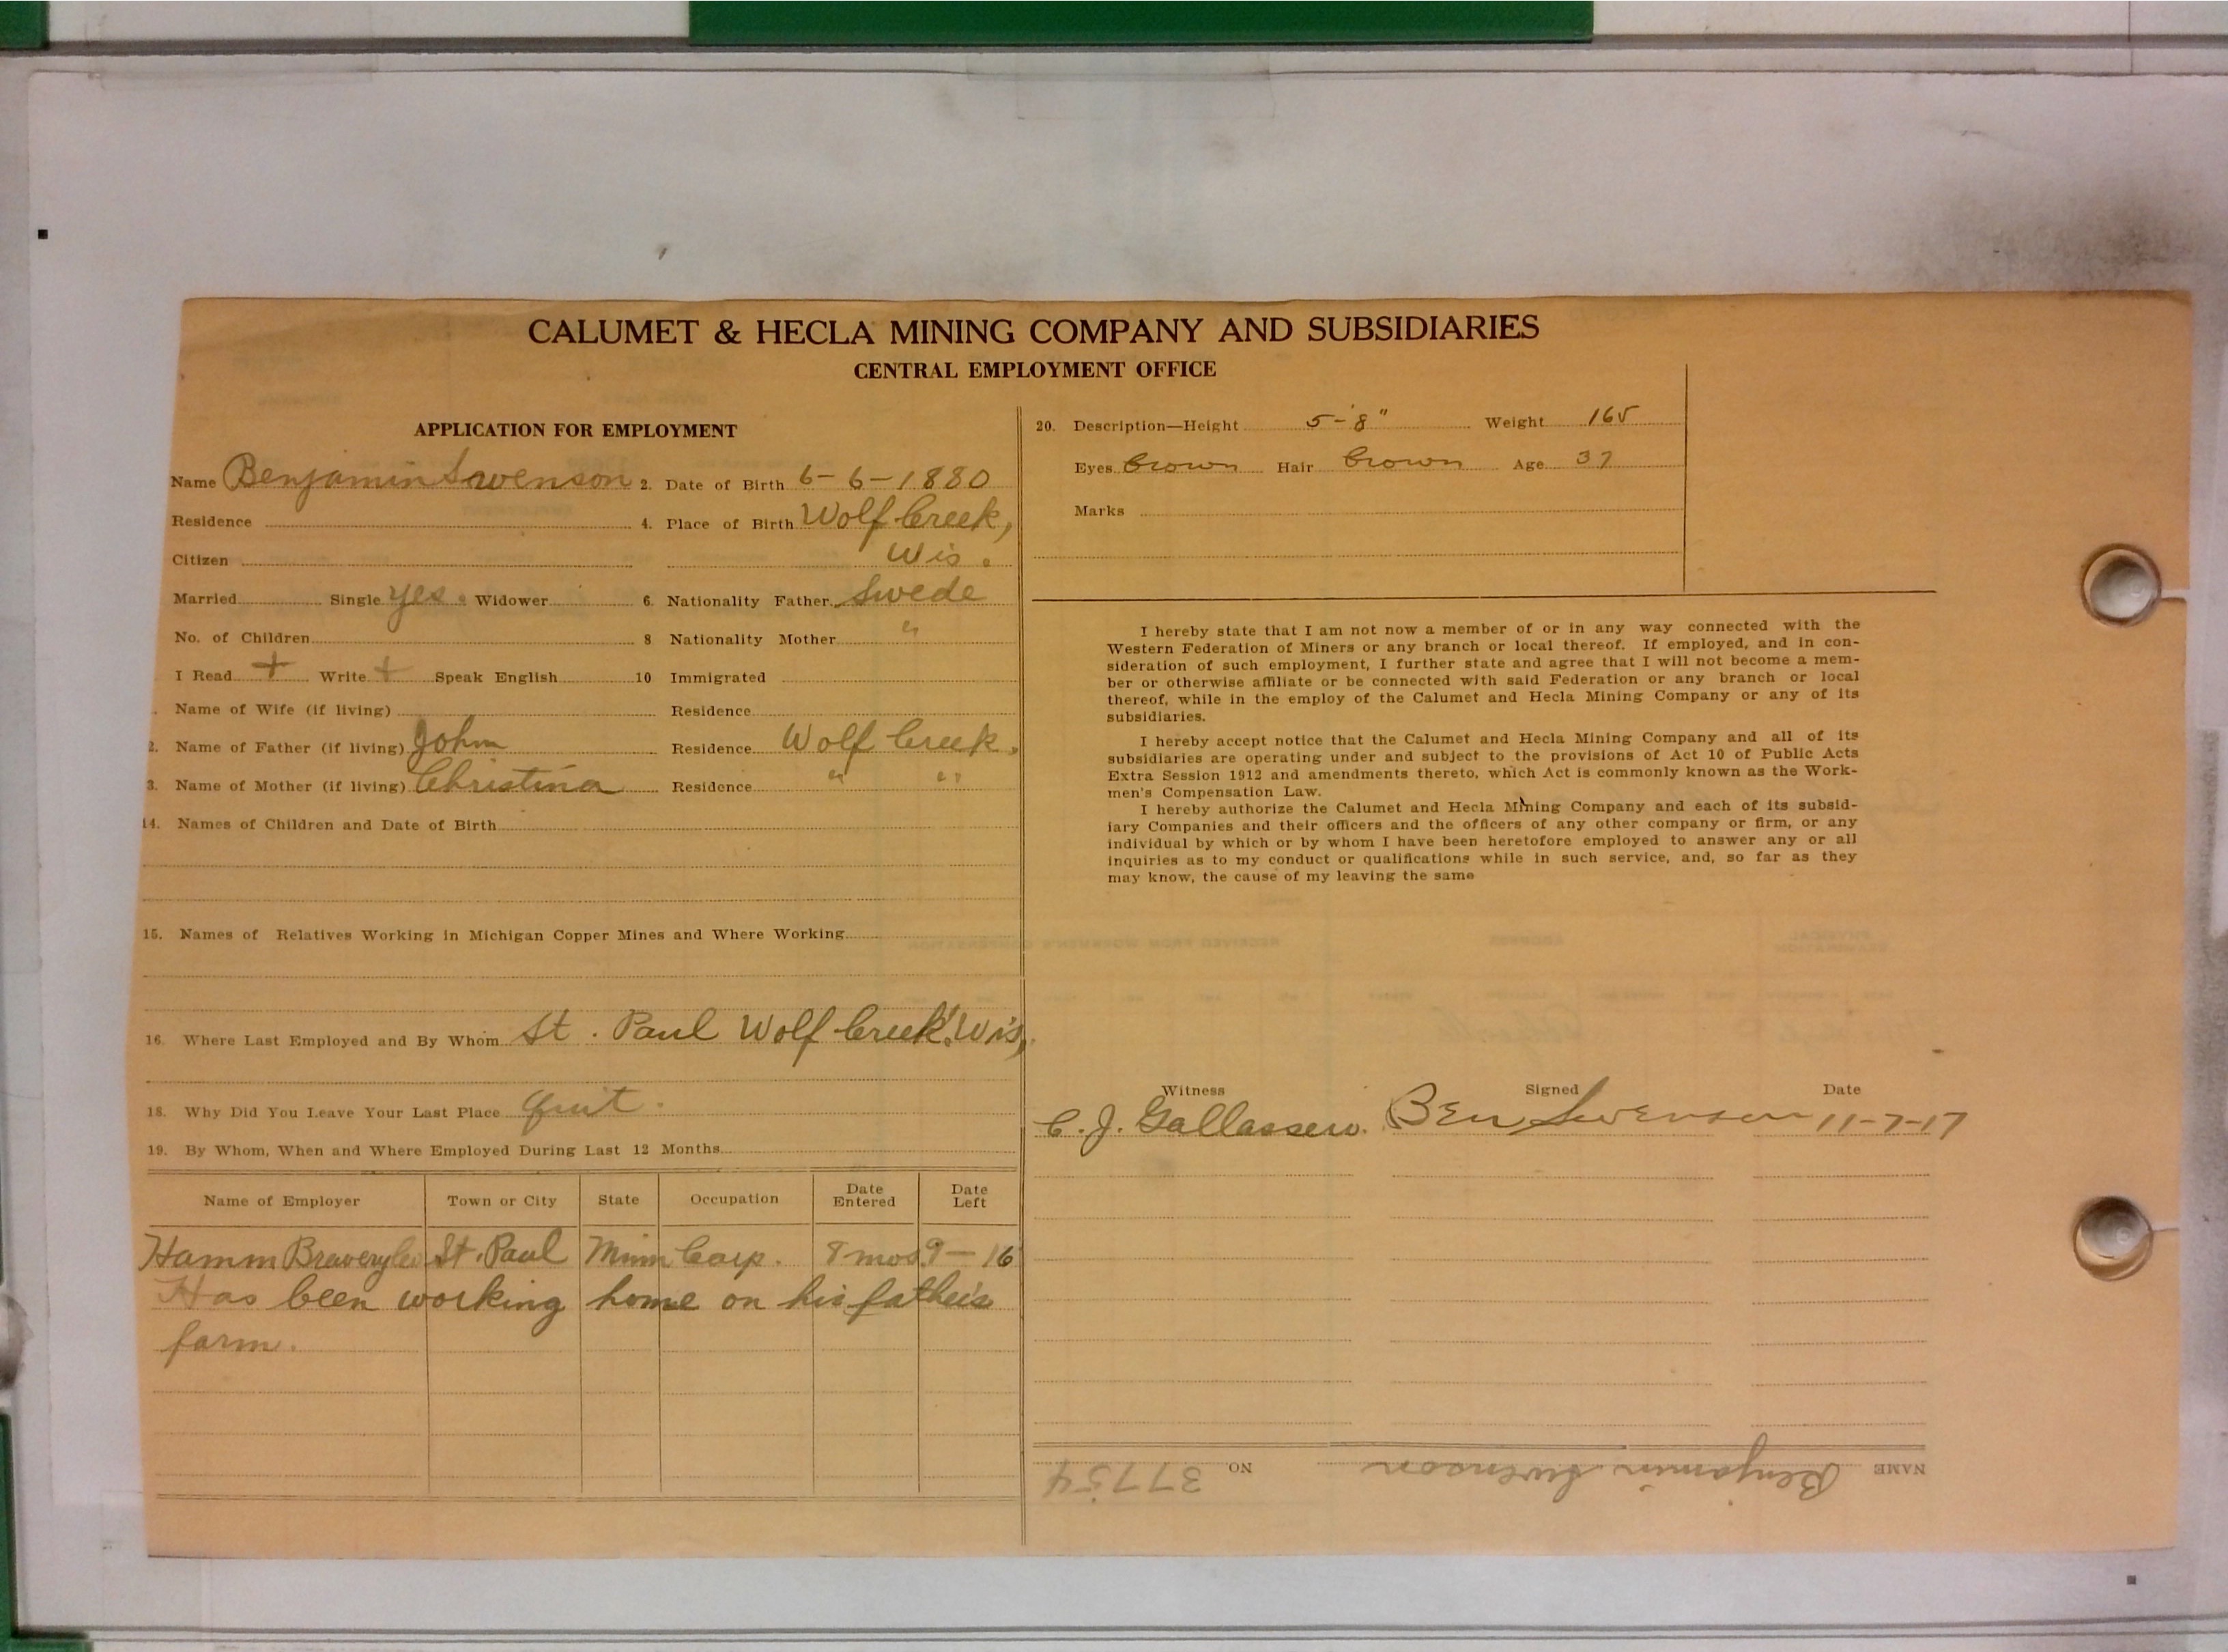 CALUMET & HECLA MINING COMPANY AND SUBSIDIARIES
CENTRAL EMPLOYMENT OFFICE
APPLICATION FOR EMPLOYMENT
Name Benjamin Swenson 2. Date of Birth 6-6-1880
Residence 4. Place of Birth Wolf Creek,
Citizen Wis.
Married Single yes. Widower 6. Nationality Father Swede
No. of Children 8 Nationality Mother "
I Read + Write + Speak English 10 Immigrated
Name of Wife (if living) Residence
2. Name of Father (if living) John Residence Wolf Creek.
3. Name of Mother (if living) Christina Residence " "
14. Names of Children and Date of Birth
15. Names of Relatives Working in Michigan Copper Mines and Where Working
16. Where Last Employed and By Whom St. Paul Wolf Creek, Wis,
18. Why Did You Leave Your Last Place Quit.
19. By Whom, When and Where Employed During Last 12 Months
Name of Employer Town or City State Occupation Date Entered Date Left
Hamm Bravery Co St. Paul Minn Carp. 8 mos. 9-16
Has been working home on his father's
farm.
20. Description—Height 5-8" Weight 165
Eyes Brown Hair Brown Age 37
Marks
I hereby state that I am not now a member of or in any way connected with the
Western Federation of Miners or any branch or local thereof. If employed, and in con-
sideration of such employment, I further state and agree that I will not become a mem-
ber or otherwise affiliate or be connected with said Federation or any branch or local
thereof, while in the employ of the Calumet and Hecla Mining Company or any of its
subsidiaries.
I hereby accept notice that the Calumet and Hecla Mining Company and all of its
subsidiaries are operating under and subject to the provisions of Act 10 of Public Acts
Extra Session 1912 and amendments thereto, which Act is commonly known as the Work-
men's Compensation Law.
I hereby authorize the Calumet and Hecla Mining Company and each of its subsid-
iary Companies and their officers and the officers of any other company or firm, or any
individual by which or by whom I have been heretofore employed to answer any or all
inquiries as to my conduct or qualifications while in such service, and, so far as they
may know, the cause of my leaving the same
Witness Signed Date
C. J. Gallassero. Ben Swenson 11-7-17
NAME Benjamin Swenson NO 37754